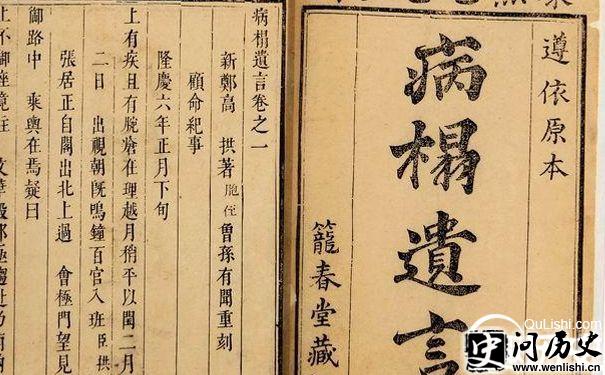 遵依原本
病榻遺言
籠春堂藏
病榻遺言卷之一
新鄭高 拱著 胞侄 曾孫有聞重刻
顧命紀事
隆慶六年正月下旬
上有疾且有腕瘡在理越月稍平以閏二月
二日 出視朝旣鳴鐘百官入班臣拱
張居正自閣出北上過 會極門望見
御路中 乘輿在焉疑曰
上不御座竟往 文華殿耶
QuLishi.com
问历史
www.wenlishi.cn